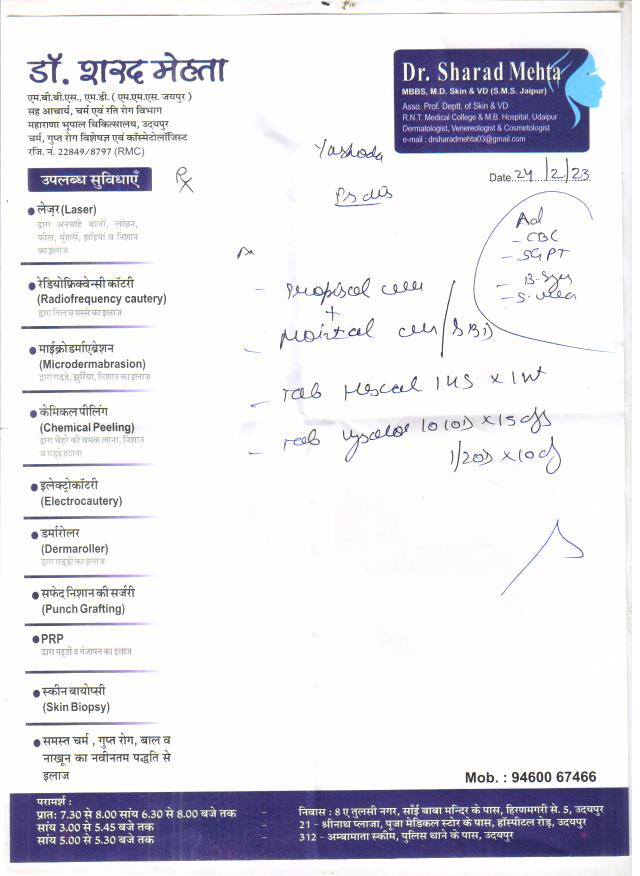 डॉ. शरद मेहता
एम.बी.बी.एस., एम.डी. ( एम.एम.एस. जयपुर )
सह आचार्य, चर्म एवं रति रोग विभाग
महाराणा भूपाल चिकित्सालय, उदयपुर
चर्म, गुप्त रोग विशेषज्ञ एवं कॉस्मेटोलॉजिस्ट
रजि. नं. 22849/8797 (RMC)
Dr. Sharad Mehta
MBBS, M.D. Skin & VD (S.M.S. Jaipur)
Asso. Prof. Deptt. of Skin & VD
R.N.T. Medical College & M.B. Hospital, Udaipur
Dermatologist, Venereologist & Cosmetologist
e-mail : drsharadmehta03@gmail.com
Yashoda
Date 24/2/23
Ad
- CBC
- SGPT
- S. urea
+
1/2 OD x 10 d
उपलब्ध सुविधाएँ
लेज़र (Laser)
द्वारा अनचाहे बालों, लांछन,
कील, मुंहासे, झाँइया व निशान
का इलाज
रेडियोफ्रिक्वेन्सी कॉटरी
(Radiofrequency cautery)
द्वारा तिल व मस्से का इलाज
माईक्रोडर्माएब्रेशन
(Microdermabrasion)
द्वारा गड्डे, झुर्रिया, निशान का इलाज
केमिकल पीलिंग
(Chemical Peeling)
द्वारा चेहरे की चमक लाना, निशान
व गड्डे हटाना
इलेक्ट्रोकॉटरी
(Electrocautery)
डर्मारोलर
(Dermaroller)
द्वारा गड्डों का इलाज
सफेद निशान की सर्जरी
(Punch Grafting)
PRP
द्वारा गड्डों व गंजापन का इलाज
स्कीन बायोप्सी
(Skin Biopsy)
समस्त चर्म , गुप्त रोग, बाल व
नाखून का नवीनतम पद्धति से
इलाज
Mob. : 94600 67466
परामर्श :
प्रातः 7.30 से 8.00 सांय 6.30 से 8.00 बजे तक - निवास : 8 ए तुलसी नगर, साँई बाबा मन्दिर के पास, हिरणमगरी से. 5, उदयपुर
सांय 3.00 से 5.45 बजे तक - 21 - श्रीनाथ प्लाजा, पूजा मेडिकल स्टोर के पास, हॉस्पीटल रोड़, उदयपुर
सांय 5.00 से 5.30 बजे तक - 312 - अम्बामाता स्कीम, पुलिस थाने के पास, उदयपुर